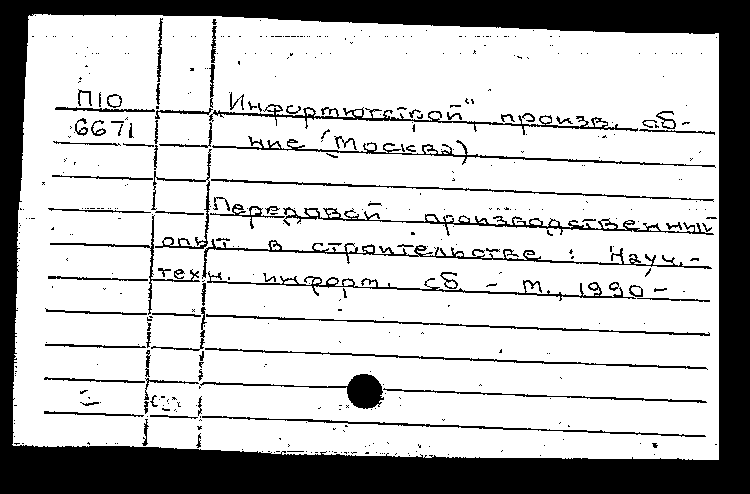 П10
6671
"Информюгстрой", произв. об-
ние (Москва)
Передовой производственный
опыт в строительстве : Науч.-
техн. информ. сб - М., 1990-